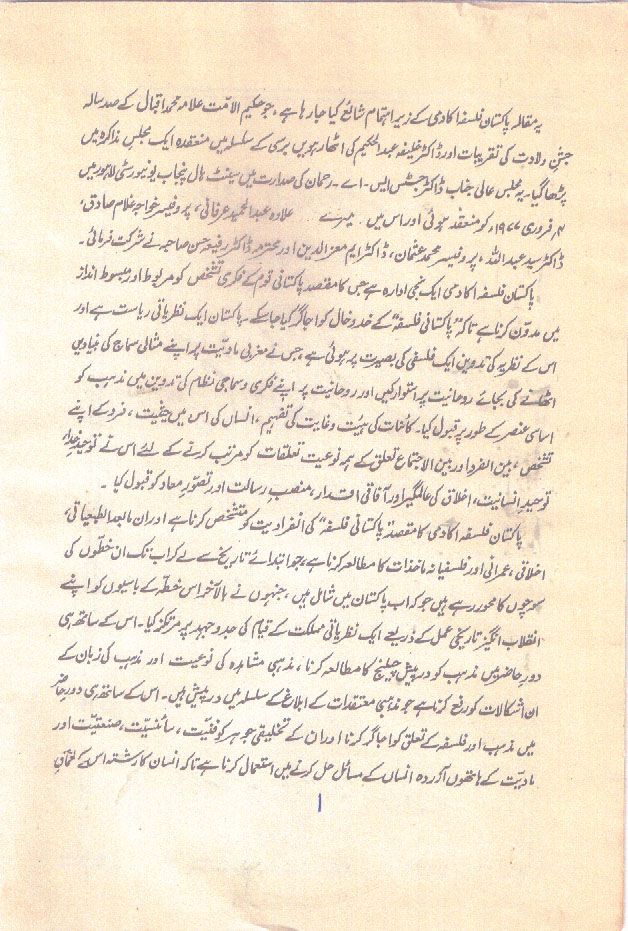 یہ مقالہ پاکستان فلسفہ اکادمی کے زیر اہتمام شائع کیا جا رہا ہے، جو حکیم الامّت علامہ محمد اقبال کے صد سالہ
جشنِ ولادت کی تقریبات اور ڈاکٹر خلیفہ عبدالحکیم کی اٹھارہویں برسی کے سلسلہ میں منعقدہ ایک مجلسِ مذاکرہ میں
پڑھا گیا۔ یہ مجلس عالی جناب ڈاکٹر جسٹس ایس۔ اے۔ رحمان کی صدارت میں سینٹ ہال پنجاب یونیورسٹی لاہور میں
فروری ۱۹۷۷ء کو منعقد ہوئی اور اس میں میرے علاوہ عبدالحمید عرفانی، پروفیسر خواجہ غلام صادق،
ڈاکٹر سید عبداللہ، پروفیسر محمد عثمان، ڈاکٹر ایم معزالدین اور محترمہ ڈاکٹر رفیعہ حسن صاحبہ نے شرکت فرمائی۔
پاکستان فلسفہ اکادمی ایک نجی ادارہ ہے جس کا مقصد پاکستانی قوم کے فکری تشخص کو مربوط اور مبسوط انداز
میں مدوّن کرنا ہے تاکہ "پاکستانی فلسفہ" کے خدوخال کو اجاگر کیا جا سکے۔ پاکستان ایک نظریاتی ریاست ہے اور
اس کے نظریہ کی تدوین ایک فلسفی کی بصیرت پر ہوئی ہے، جس نے مغربی مادیّت پر اپنے مثالی سماج کی بنیادیں
اٹھانے کی بجائے روحانیت پر استوار کیں اور روحانیت پر اپنے فکری و سماجی نظام کی تدوین میں مذہب کو
اساسی عنصر کے طور پر قبول کیا۔ کائنات کی ہیئت و غایت کی تفہیم، انساں کی اس میں حیثیت، فرد کے اپنے
تشخص، بین الفرد اور بین الاجتماع تعلق کے ہمہ نوعیت تعلقات کو مرتب کرنے کے لئے اس نے توحیدِ خدا،
توحیدِ انسانیت، اخلاق کی عالمگیر اور آفاقی اقدار، منصبِ رسالت اور تصوّرِ معاد کو قبول کیا۔
پاکستان فلسفہ اکادمی کا مقصد "پاکستانی فلسفہ" کی انفرادیت کو متشخص کرنا ہے اور ان مابعد الطبعیاتی،
اخلاقی، عمرانی اور فلسفیانہ ماخذات کا مطالعہ کرنا ہے، جو ابتدائے تاریخ سے لے کر اب تک ان خطّوں کی
سوچوں کا محور رہے ہیں جو کہ اب پاکستان میں شامل ہیں، جنہوں نے بالآخر اس خطّہ کے باسیوں کو اپنے
انقلاب انگیز تاریخی عمل کے ذریعے ایک نظریاتی مملکت کے قیام کی جدوجہد پر مرتکز کیا۔ اس کے ساتھ ہی
دورِ حاضر میں مذہب کو درپیش چیلنج کا مطالعہ کرنا، مذہبی مشاہدہ کی نوعیت اور مذہب کی زبان کے
ان اشکالات کو رفع کرنا ہے جو مذہبی معتقدات کے ابلاغ کے سلسلہ میں درپیش ہیں۔ اس کے ساتھ ہی دورِ حاضر
میں مذہب اور فلسفہ کے تعلق کو اجاگر کرنا اور ان کے تخلیقی جوہر کو فنیّت، سائنسیّت، صنعتیّت اور
مادیّت کے ہاتھوں آزردہ انساں کے مسائل حل کرنے میں استعمال کرنا ہے تاکہ انسان کا رشتہ اس کے
1